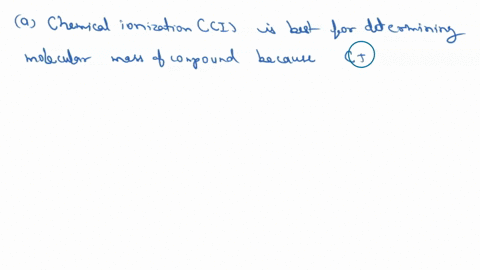 (a) Chemical ionization (CI) is best for determining
molecular mass of compound because CI